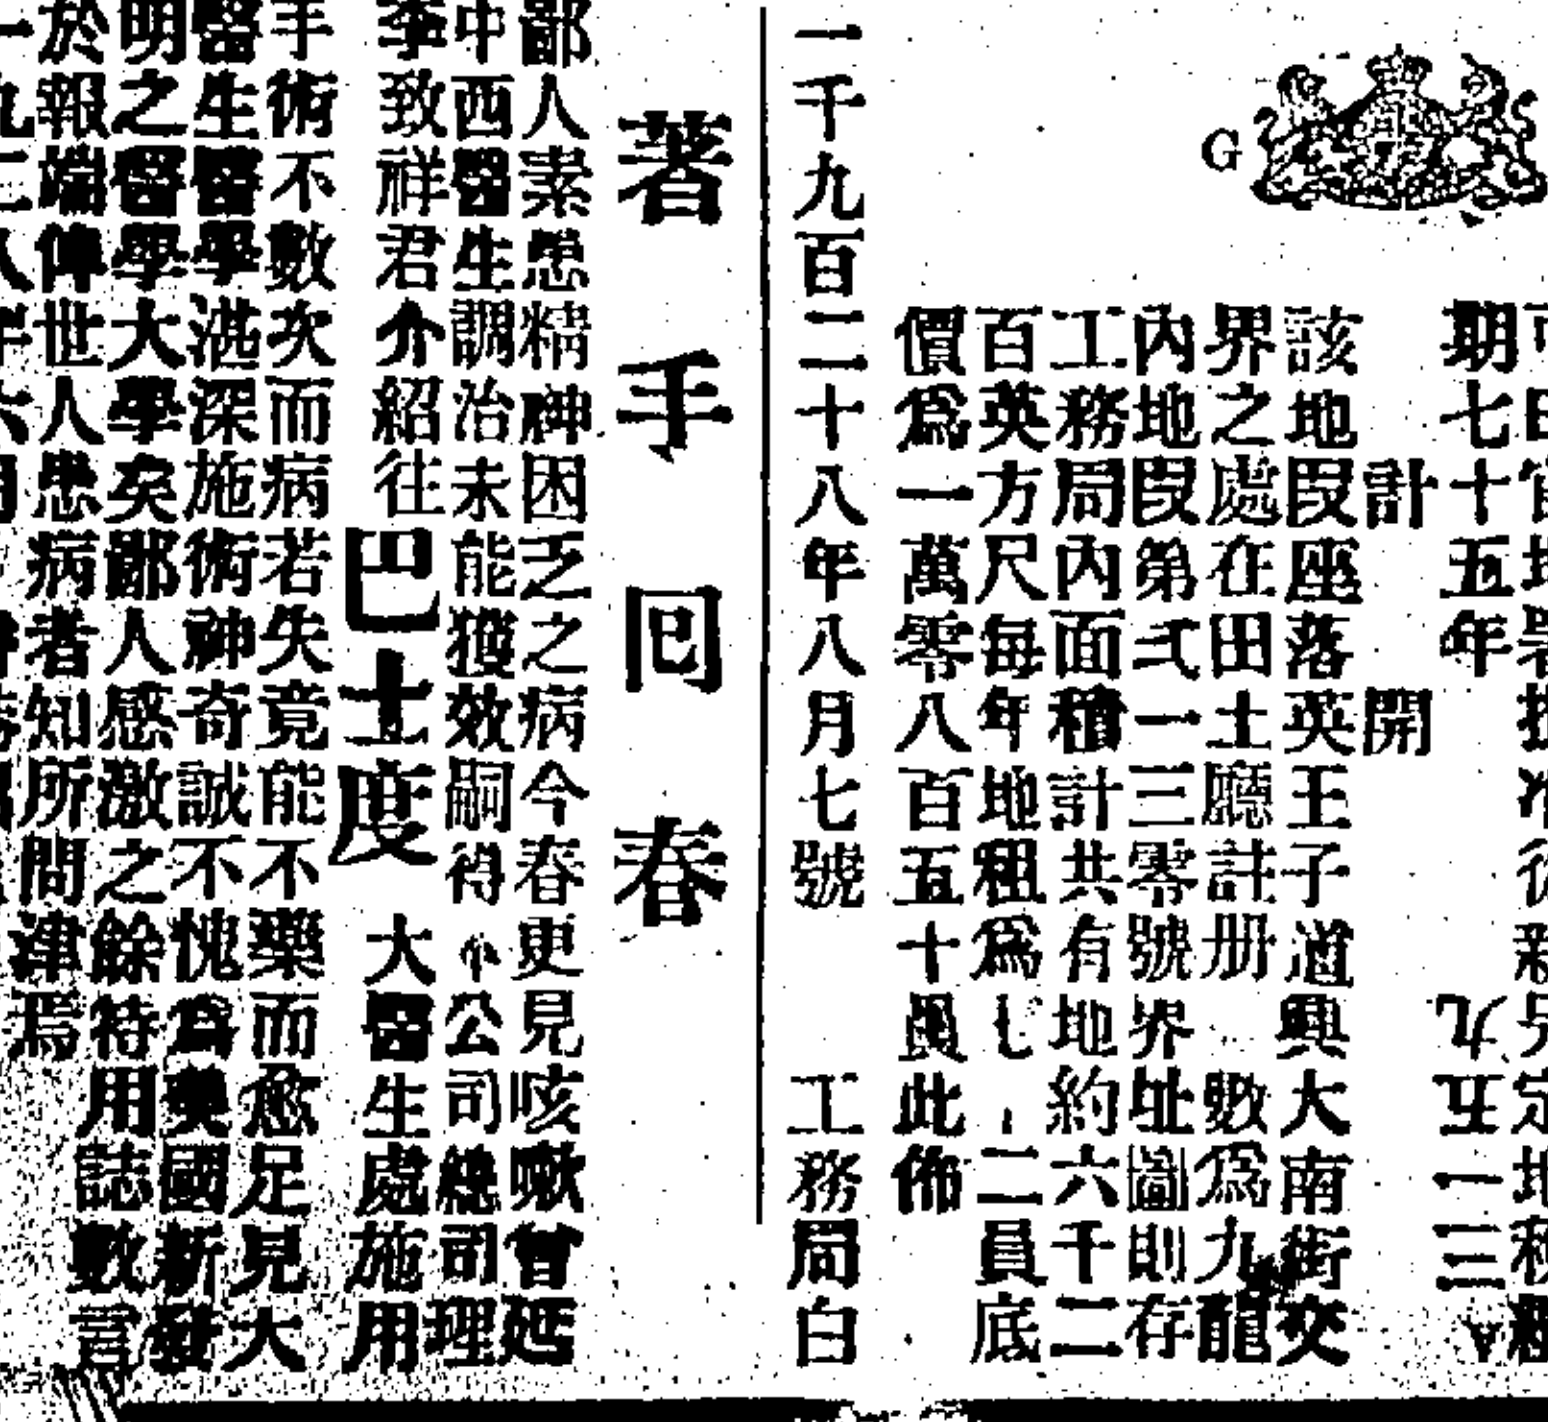 G
期七十五年 九五一三
計開
該地段座落英王子道興大南街交
界之處在田土廳註册 數為九龍
內地段第弍一三零號界址圖則存
工務局內面積計共有地約六千二
百英方尺每年地租爲七 二員底
價爲一萬零八百五十員此佈
一千九百二十八年八月七號 工務局白
著手回春
鄙人素患精神困乏之病今春更見咳嗽曾延
中西醫生調治未能獲效嗣得小公司總司理
李致祥君介紹往巴士度大醫生處施用
手術不數次而病若失竟能不藥而愈足見大
醫生醫學湛深施術神奇誠不愧爲美國新發
明之醫學大學矣鄙人感激之餘特用誌數言
於報端俾世人患病者知所問津焉